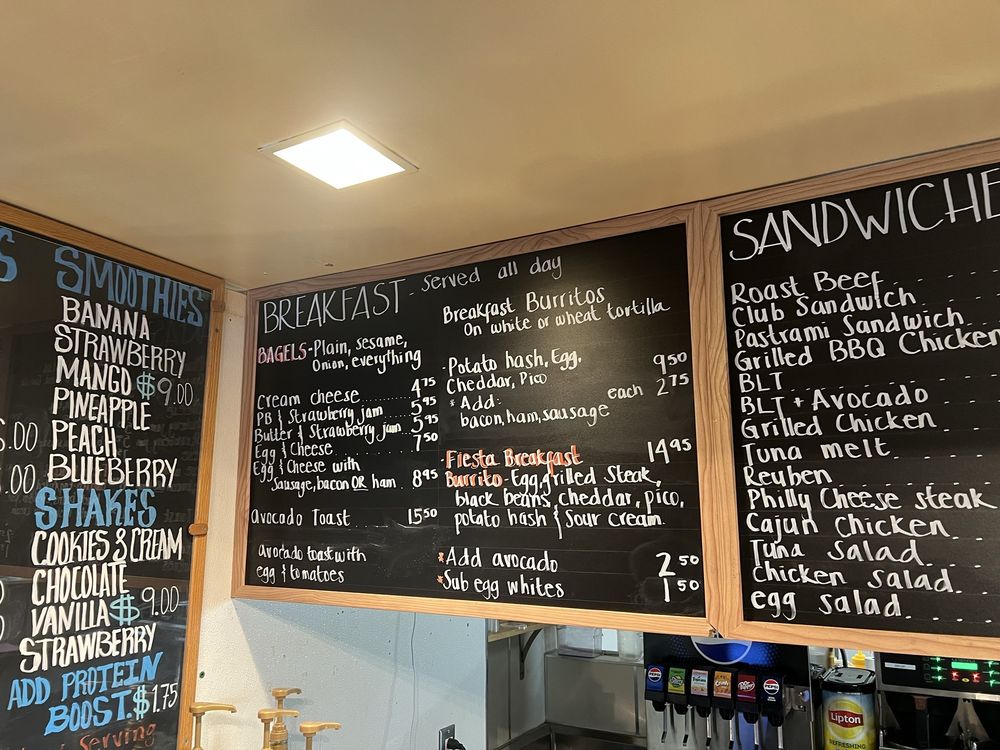 S
SMOOTHIES
BANANA
STRAWBERRY
MANGO $9.00
PINEAPPLE
PEACH
BLUEBERRY
SHAKES
COOKIES & CREAM
CHOCOLATE
VANILLA $9.00
STRAWBERRY
ADD PROTEIN
BOOST. $1.75
Serving
BREAKFAST - Served all day
BAGELS - Plain, sesame,
Onion, everything
Cream cheese 4.75
PB & Strawberry jam 5.95
Butter & Strawberry jam 5.95
Egg & Cheese 7.50
Egg & Cheese with
Sausage, bacon OR ham 8.95
Avocado Toast 15.50
Avocado toast with
egg & tomatoes
Breakfast Burritos
On white or wheat tortilla
- Potato hash, Egg, 9.50
Cheddar, Pico
* Add: each 2.75
bacon, ham, sausage
Fiesta Breakfast 14.95
Burrito - Egg, grilled Steak,
black beans, cheddar, pico,
potato hash & Sour cream
*Add avocado 2.50
*Sub egg whites 1.50
SANDWICHE
Roast Beef
Club Sandwich
Pastrami Sandwich
Grilled BBQ Chicken
BLT
BLT + Avocado
Grilled Chicken
Tuna melt
Reuben
Philly Cheese steak
Cajun Chicken
Tuna Salad
Chicken Salad
egg salad
pepsi
Lipton
REFRESHING